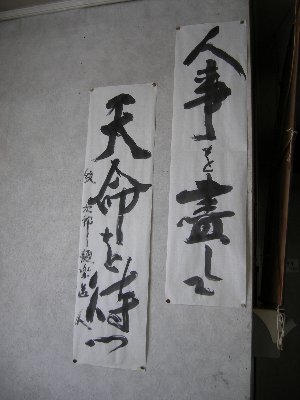 人事を盡して
天命を待つ